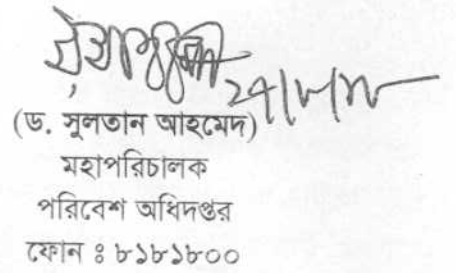 (ড. সুলতান আহমেদ)
মহাপরিচালক
পরিবেশ অধিদপ্তর
ফোন ঃ ৮১৮১৮০০